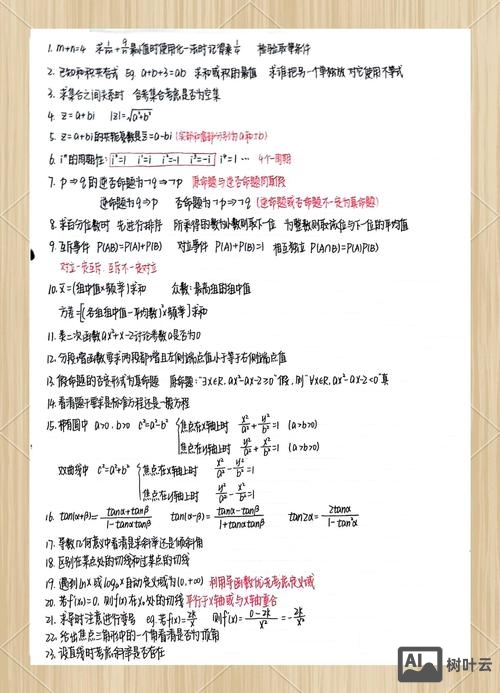 1. m+n=4 求1/m+9/n最小值时使用化一法时记得乘1/4 检验取等条件
2. 已知和积共存式 Eg. a+b+3=ab 求和或积的最值 求谁把另一个单独放 对它使用不等式
3. 求集合之间关系时 会考集合考虑是否为空集
4. z=a+bi |z|=√(a²+b²)
5. z=a+bi的共轭复数是z̄=a-bi (实部和虚部分别为a和±b)
6. iⁿ的周期性: i⁰=1 i¹=i i²=-1 i³=-i i⁴=1 … 4个一周期
7. p⇒q的逆否命题为¬q⇒¬p 原命题与逆否命题同真假
逆命题为q⇒p 否命题为¬p⇒¬q (逆命题或否命题不一定为真命题)
8. 求百分位数时 先进行排序 所求得的数为小数则取下一位 为整数则取该位与下一位的平均值
9. 互斥事件 P(AB)=P(A)+P(B) 对立事件 P(A)+P(B)=1 相互独立 P(A∩B)=P(A)P(B)
对立一定互斥, 互斥不一定对立
10. x̄=(组中值×频率)求和 众数:最高组的组中值
方差=[(各组组中值-平均数)²×频率]求和
11. 类二次函数ax²+x-2讨论参数a是否为0
12. 分段增函数要求两段都增且左侧端点值小于等于右侧端点值
13. 假命题的否定形式为真命题 原命题:"∃x∈R, ax²-ax-2≥0"假, 则"∀x∈R, ax²-ax-2<0"真
14. 看清题干要求是标准方程还是一般方程
15. 椭圆中 a>0, b>0 c²=a²-b² 焦点在x轴上时 x²/a²+y²/b²=1 (a>b>0)
焦点在y轴上时 y²/a²+x²/b²=1 (a>b>0)
双曲线中 c²=a²+b² 焦点在x轴上时 x²/a²-y²/b²=1
焦点在y轴上时 y²/a²-x²/b²=1
16. tan(α+β)=(tanα+tanβ)/(1-tanαtanβ) tan(α-β)=(tanα-tanβ)/(1+tanαtanβ) tan2α=2tanα/(1-tan²α)
17. 导数几何意义中看清是求斜率还是倾斜角
18. 区别在某点处的切线和过某点的切线
19. 遇到lnx或logₐx自动定义域为(0,+∞) 利用导函数优先考虑定义域
20. 若f'(x₀)=0, 则f(x)在x₀处的切线平行于x轴或与x轴重合
21. 求导时注意进行变号 eg. 若f(x)=2k/x 则f'(x)=(0-2k)/x²=-2k/x²
22. 给出焦点三角形中的一个角看清是否为顶角
23. 设直线时考虑斜率是否存在
AI 树叶云